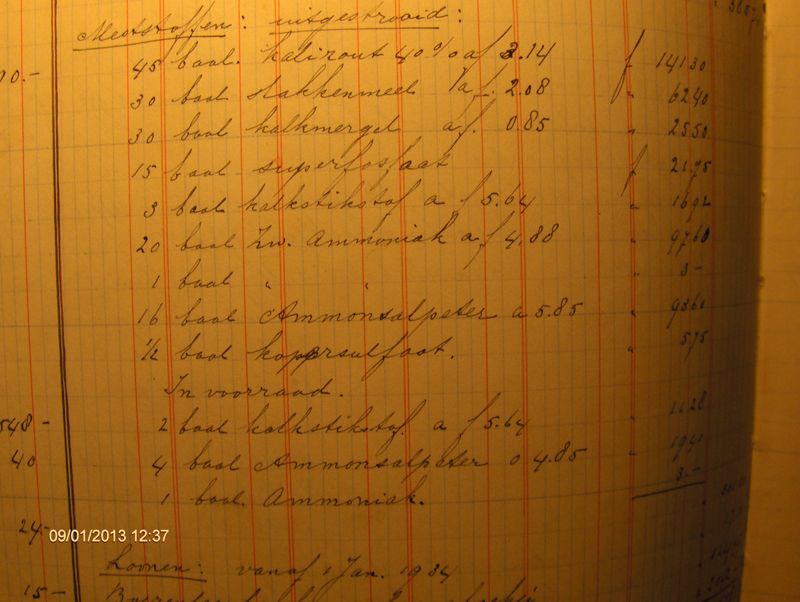 Meststoffen: uitgestrooid:
70.-
45 baal kalizout 40% a f 3.14 f 141 30
30 baal slakkenmeel a f. 2.08 " 62 40
30 baal kalkmergel a f. 0.85 " 25 50
15 baal superfosfaat f 21.75
3 baal kalkstikstof a f 5.64 " 16 92
20 baal Zw. Ammoniak a f 4.88 " 97 60
1 baal " " " 3 -
16 baal Ammonsalpeter a 5.85 " 93 60
1/2 baal kopersulfaat. " 5 75
In voorraad.
548 - 2 baal kalkstikstof a f 5.64 " 11 28
40 4 baal Ammonsalpeter a 4.85 " 19 40
1 baal Ammoniak. 3.-
24-
09/01/2013 12:37
Loonen: vanaf 1 Jan. 1934
15 -